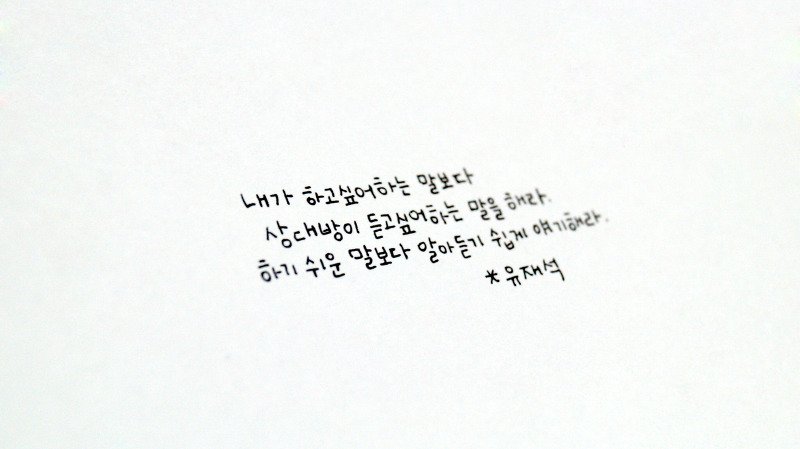 내가 하고싶어하는 말보다
상대방이 듣고싶어하는 말을 해라.
하기 쉬운 말보다 알아듣기 쉽게 얘기해라.
*유재석